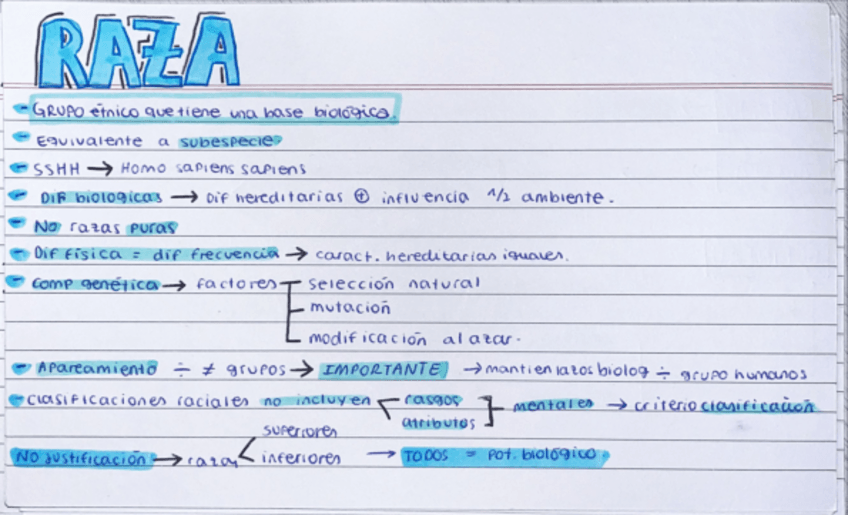 RAZA
- GRUPO étnico que tiene una base biológica.
- Equivalente a subespecie
- SSHH → Homo sapiens sapiens
- DIF biologicas → Dif hereditarias ⊕ influencia 1/2 ambiente.
- No razas puras
- Dif física = dif frecuencia → caract. hereditarias iguales.
- Comp genética → factores selección natural
mutación
modificación al azar.
- Apareamiento ÷ ≠ grupos → IMPORTANTE → mantien lazos biolog ÷ grupo humanos
- Clasificaciones raciales no incluyen rasgos atributos mentales → criterio clasificación
NO justificación → razas superiores inferiores → TODOS = pot. biológico.